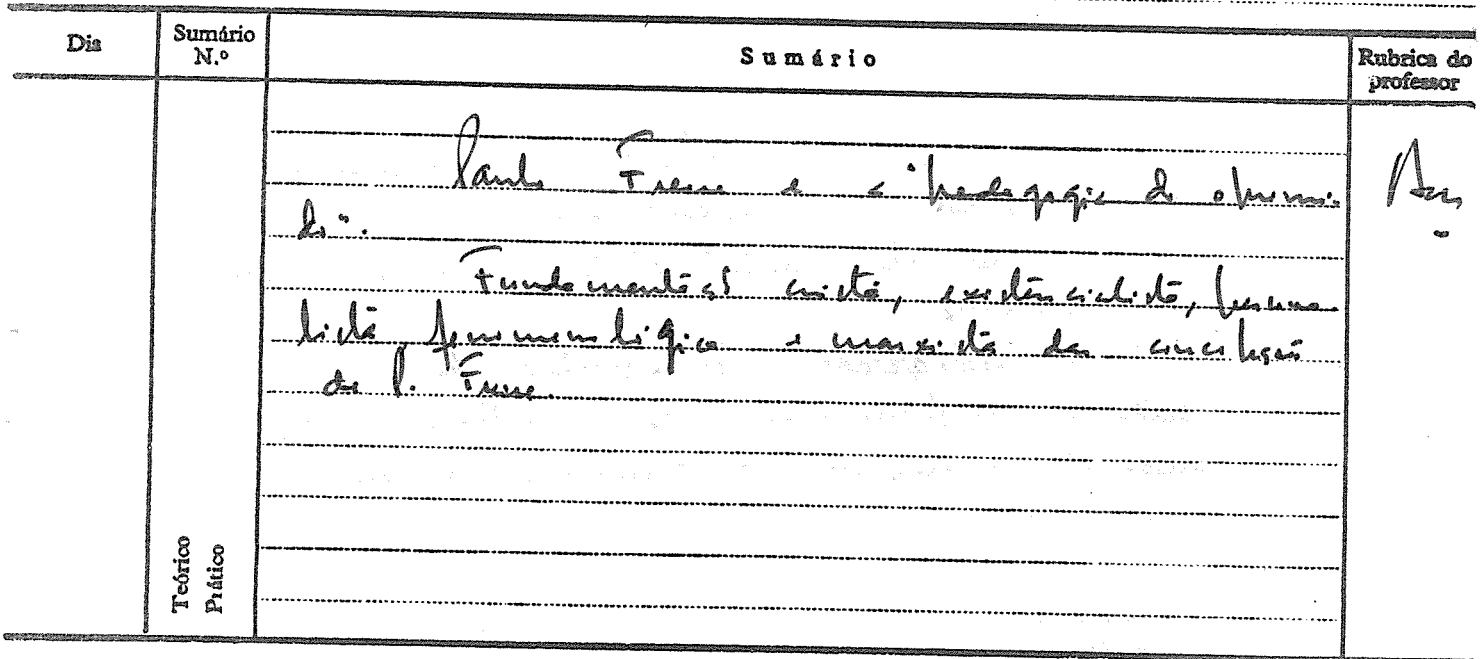 Dia
Sumário N.º
Sumário
Rubrica do professor
Paulo Freire e a "Pedagogia do oprimi-
do".
Fundamentação cristã, existencialista, persona-
lista fenomenológica e marxista da concepção
de P. Freire.
Teórico
Prático